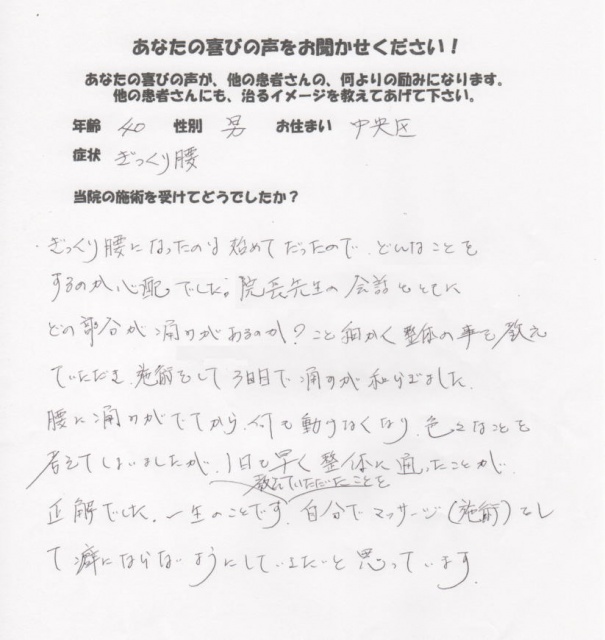 あなたの喜びの声をお聞かせください!
あなたの喜びの声が、他の患者さんの、何よりの励みになります。
他の患者さんにも、治るイメージを教えてあげて下さい。
年齢 40 性別 男 お住まい 中央区
症状 ぎっくり腰
当院の施術を受けてどうでしたか?
ぎっくり腰になったのは始めてだったので、どんなことを
するのか心配でした。院長先生の会話とともに
どの部分が痛みがあるのか?こと細かく整体の事も教え
ていただき、施術をして3日目で痛みが和らぎました。
腰に痛みがでてから、何も動けなくなり、色々なことを
考えてしまいましたが、1日も早く整体に通ったことが、
教えていただいたことを
正解でした。一生のことです、自分でマッサージ(施術)をし
て癖にならないようにしていきたいと思っています。